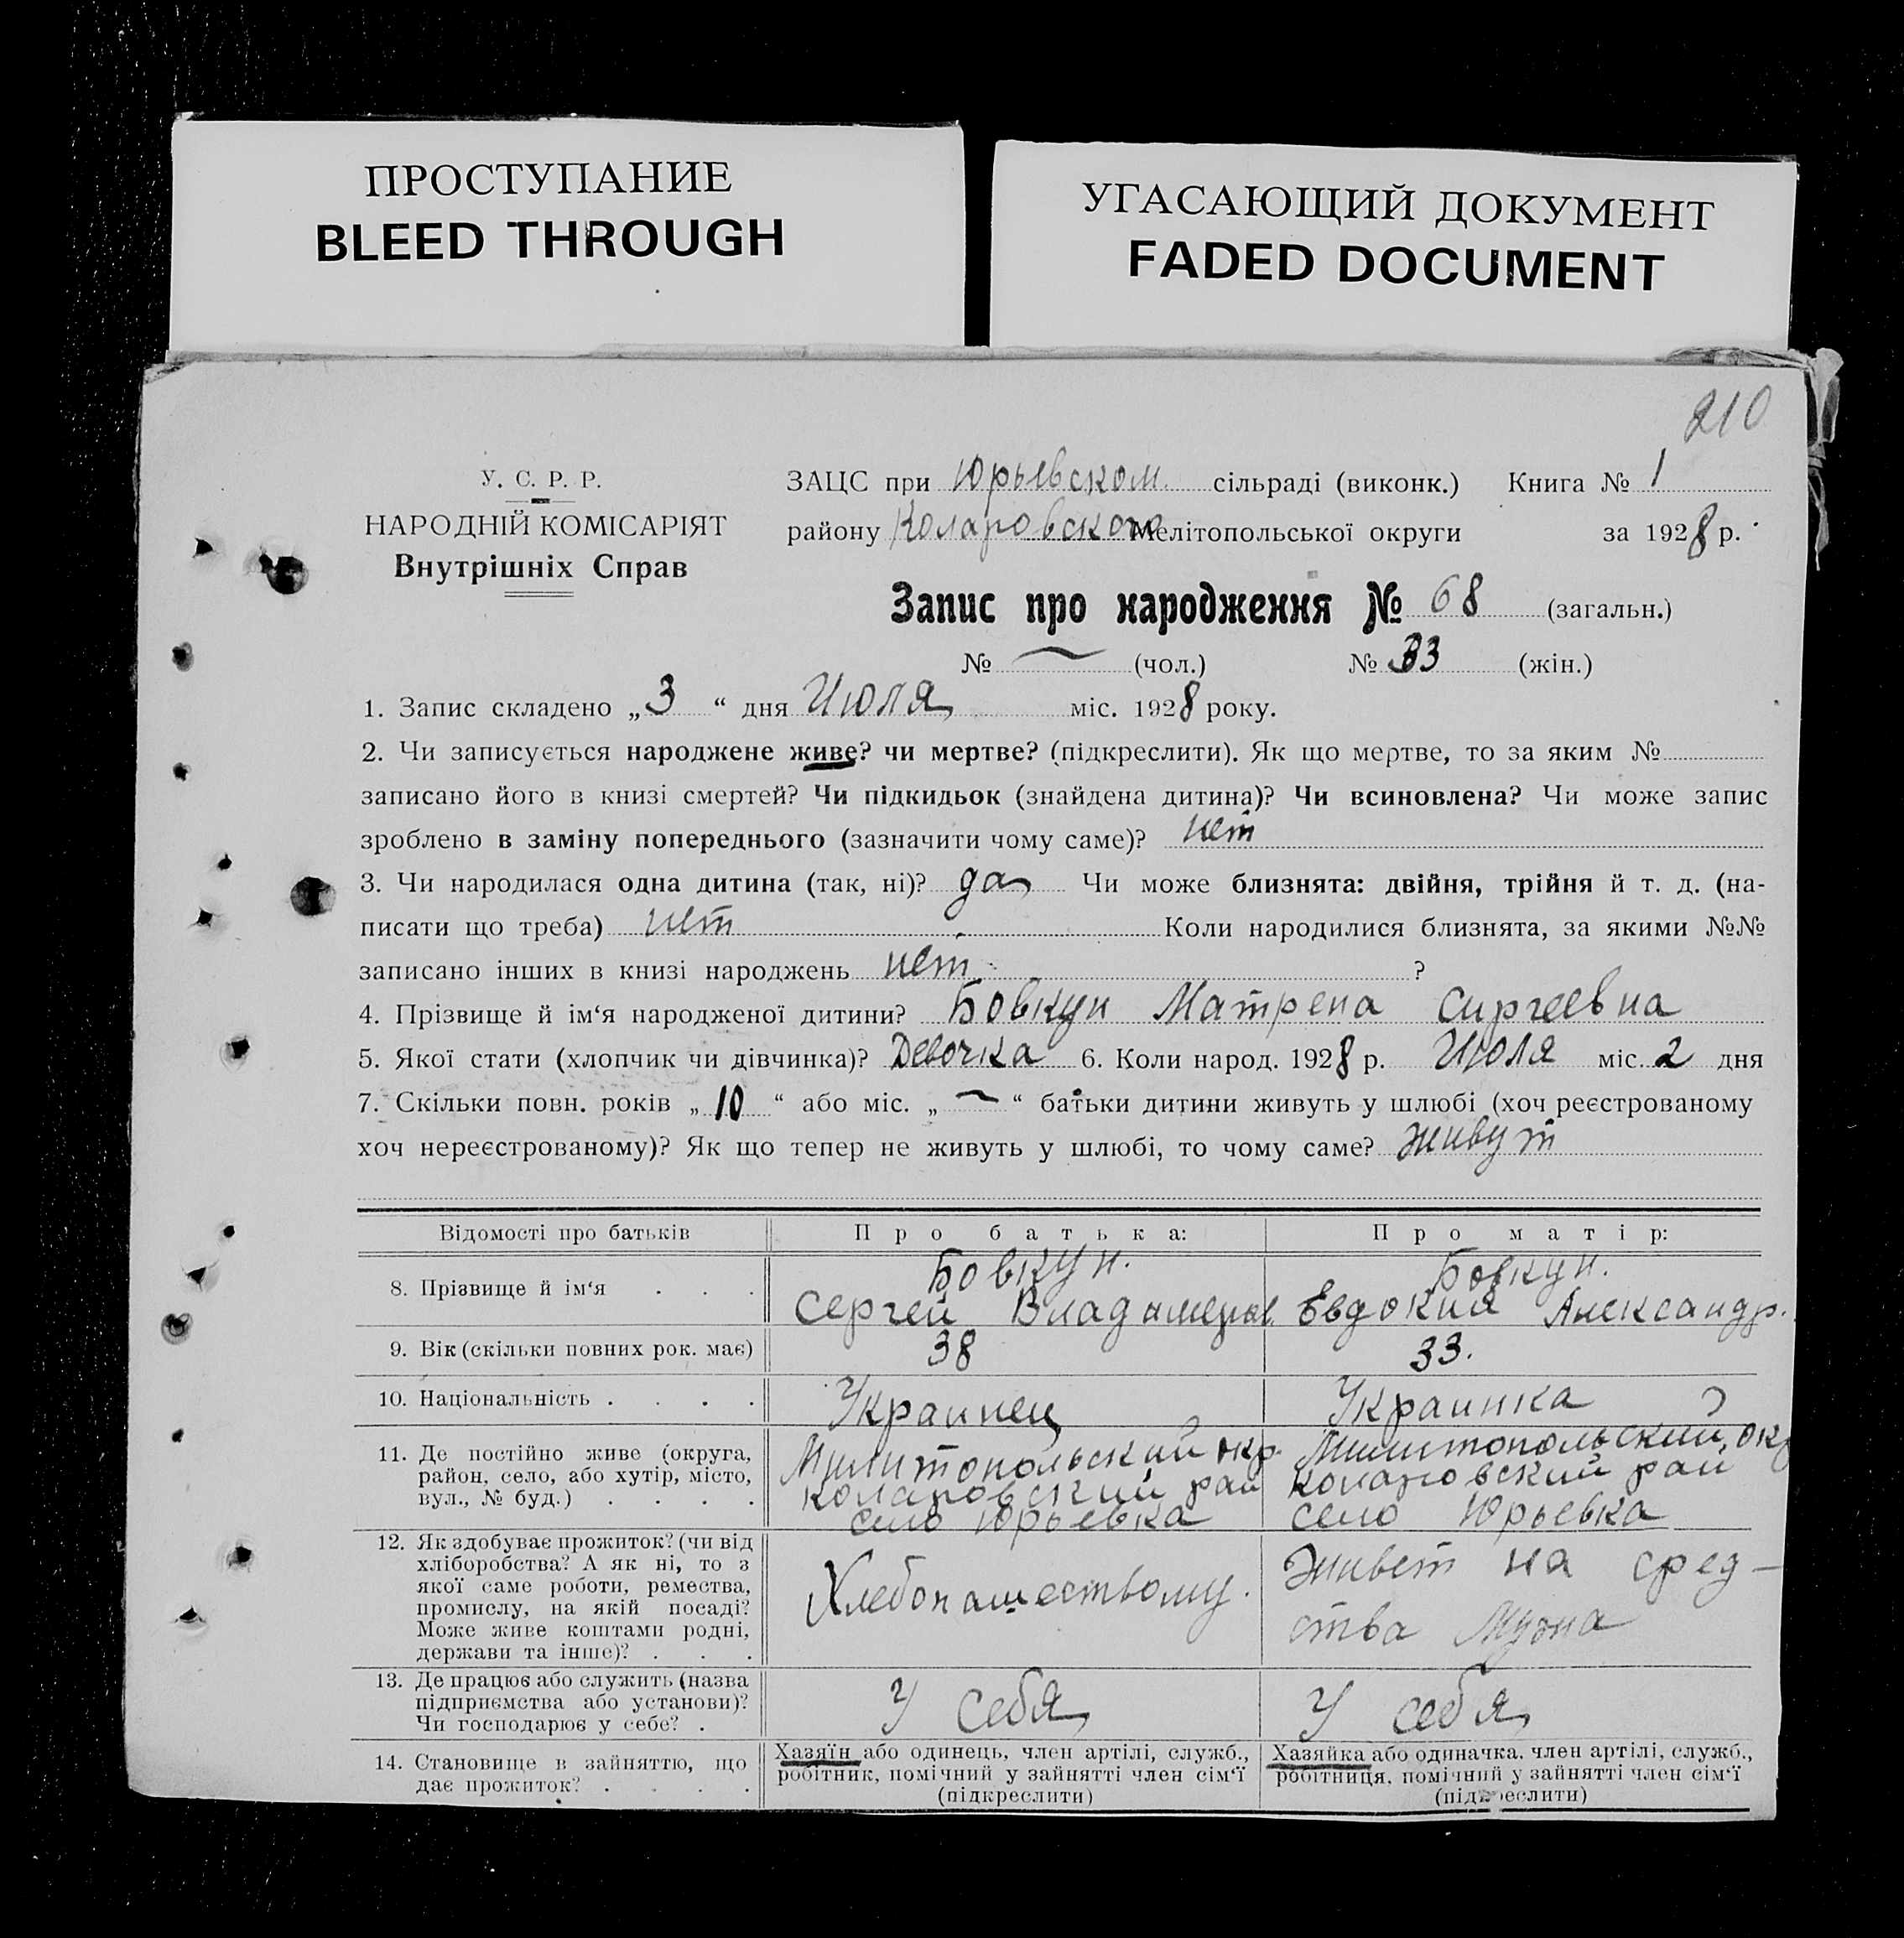 ПРОСТУПАНИЕ
BLEED THROUGH
УГАСАЮЩИЙ ДОКУМЕНТ
FADED DOCUMENT
210
У. С. Р. Р.
НАРОДНІЙ КОМІСАРІЯТ
Внутрішніх Справ
ЗАЦС при Юрьевском сільраді (виконк.) Книга № 1
району Коларовского Мелітопольської округи за 1928 р.
Запис про народження № 68 (загальн.)
№ — (чол.) № 33 (жін.)
1. Запис складено „3“ дня Июля міс. 1928 року.
2. Чи записується народжене живе? чи мертве? (підкреслити). Як що мертве, то за яким №
записано його в книзі смертей? Чи підкидьок (знайдена дитина)? Чи всиновлена? Чи може запис
зроблено в заміну попереднього (зазначити чому саме)? нет
3. Чи народилася одна дитина (так, ні)? да Чи може близнята: двійня, трійня й т. д. (на-
писати що треба) нет Коли народилися близнята, за якими №№
записано інших в книзі народжень нет ?
4. Прізвище й ім‘я народженої дитини? Бовкун Матрена Сиргеевна
5. Якої стати (хлопчик чи дівчинка)? Девочка 6. Коли народ. 1928 р. Июля міс. 2 дня
7. Скільки повн. років „10“ або міс. „—“ батьки дитини живуть у шлюбі (хоч реєстрованому
хоч нереєстрованому)? Як що тепер не живуть у шлюбі, то чому саме? живут
Відомості про батьків
Про батька:
Про матір:
8. Прізвище й ім‘я . . .
Бовкун.
Сергей Владимеров.
Бовкун.
Евдокия Александр.
9. Вік (скільки повних рок. має)
38
33.
10. Національність . . . .
Украинец
Украинка
11. Де постійно живе (округа,
район, село, або хутір, місто,
вул., № буд.) . . . .
Милитопольский окр.
коларовский рай
село Юрьевка
Милитопольский окр
коларовский рай
село Юрьевка
12. Як здобуває прожиток? (чи від
хліборобства? А як ні, то з
якої саме роботи, ремества,
промислу, на якій посаді?
Може живе коштами родні,
держави та інше)? . . .
Хлебопашествому.
Живет на сред-
ства Мужа
13. Де працює або служить (назва
підприємства або установи)?
Чи господарює у себе? .
У себя
У себя
14. Становище в зайняттю, що
дає прожиток? . . . .
Хазяїн або одинець, член артілі, служб.,
робітник, помічний у зайнятті член сім‘ї
(підкреслити)
Хазяйка або одиначка, член артілі, служб.,
робітниця, помічний у зайнятті член сім‘ї
(підкреслити)